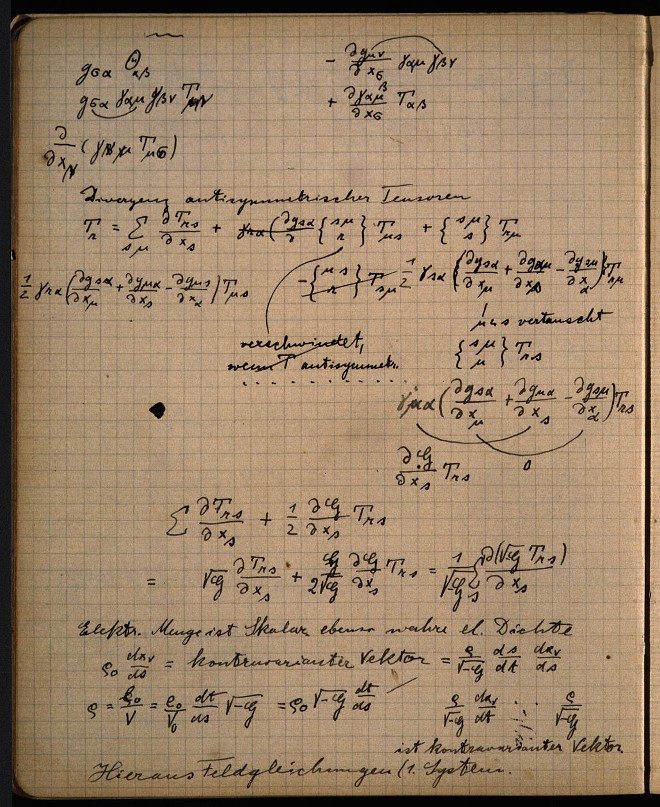 g_{σα} Θ_{αβ}
g_{σα} γ_{αμ} γ_{βν} T_{μν}
− ∂g_{μν}/∂x_σ γ_{αμ} γ_{βν}
+ ∂γ_{αμ}/∂x_σ T_{αβ}
∂/∂x_ν ( T_{μσ})
Divergenz antisymmetrischer Tensoren
T_r = Σ_{sμ} ∂T_{rs}/∂x_s + γ_{rα}(∂g_{sα}/∂ {sμ r} T_{μs} + {sμ s} T_{rμ}
1/2 γ_{rα}(∂g_{sα}/∂x_μ + ∂g_{μα}/∂x_s − ∂g_{μs}/∂x_α) T_{μs}
−{μs r} T_{sμ} 1/2 γ_{sα} {∂g_{sα}/∂x_μ + ∂g_{αμ}/∂x_s − ∂g_{sμ}/∂x_α} T_{rμ}
μ u s vertauscht
verschwindet,
wenn T antisymmetr.
{sμ μ} T_{rs}
γ_{μα}(∂g_{sα}/∂x_μ + ∂g_{μα}/∂x_s − ∂g_{sμ}/∂x_α) T_{rs}
0
∂G/∂x_s T_{rs}
Σ ∂T_{rs}/∂x_s + 1/2 ∂G/∂x_s T_{rs}
= √G ∂T_{rs}/∂x_s + G/2√G ∂G/∂x_s T_{rs} = 1/√G Σ_s ∂(√G T_{rs})/∂x_s
Elektr. Menge ist Skalar ebenso wahre el. Dichte
ρ_0 dx_ν/ds = kontravarianter Vektor = ρ/√−G ds/dt dx_ν/ds
ρ = ρ_0/V = ρ_0/V_0 dt/ds √−G = ρ_0 √−G dt/ds
ρ/√−G dx_ν/dt ... ρ/√−G
ist kontravarianter Vektor.
Hieraus Feldgleichungen (1. System.